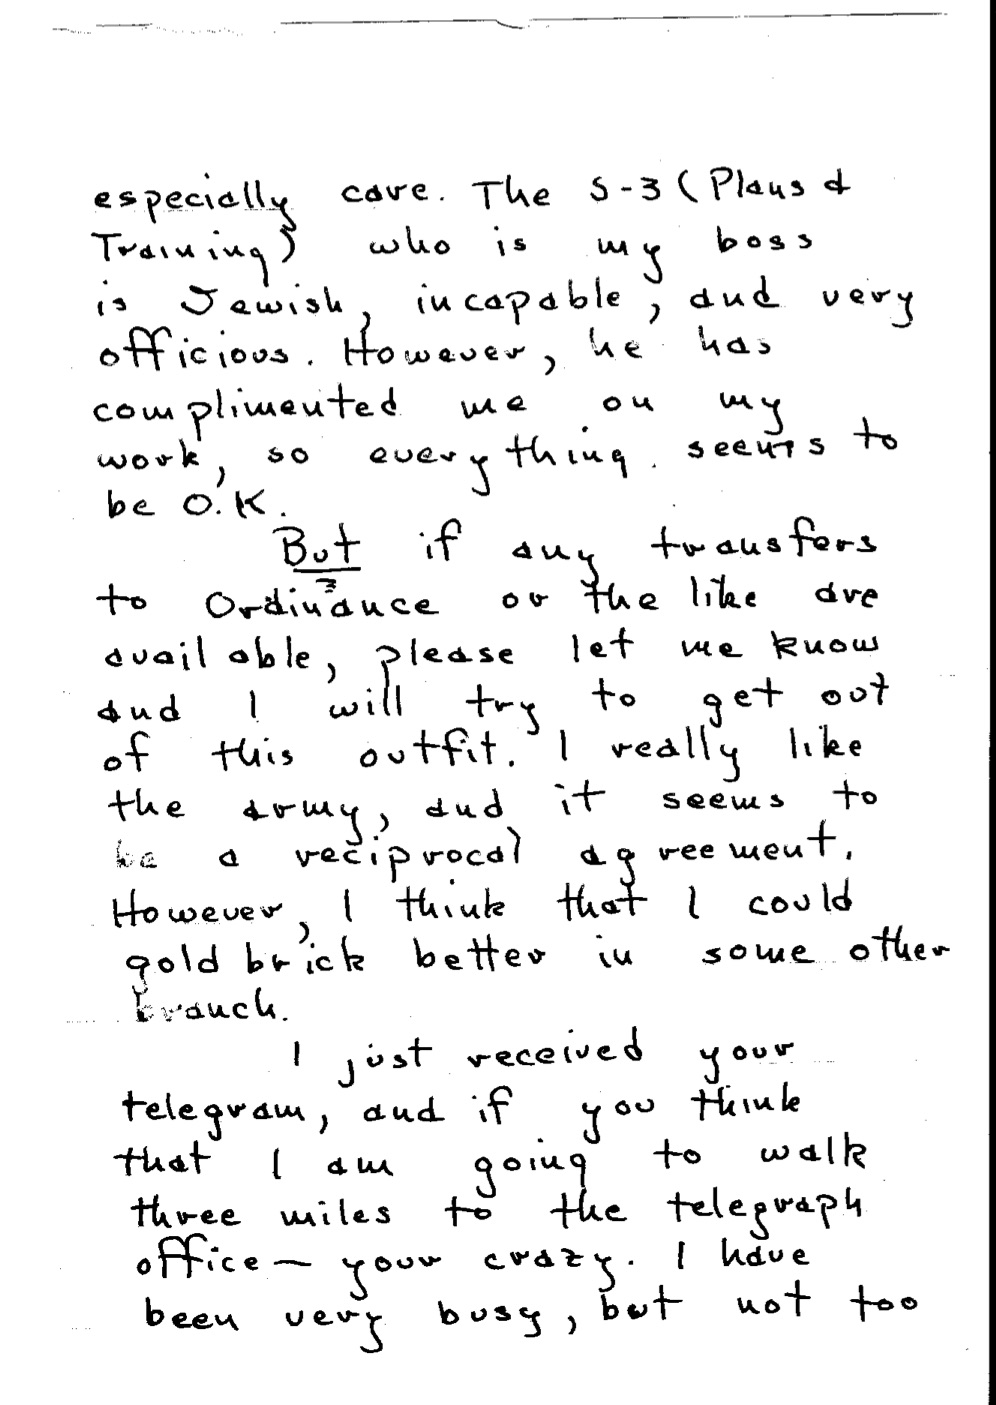 especially care. The S-3 (Plans &
Training) who is my boss
is Jewish, incapable, and very
officious. However, he has
complimented me on my
work, so everything seems to
be O.K.
But if any transfers
to Ordinance or the like are
available, please let me know
and I will try to get out
of this outfit. I really like
the army, and it seems to
be a reciprocal agreement.
However, I think that I could
gold brick better in some other
branch.
I just received your
telegram, and if you think
that I am going to walk
three miles to the telegraph
office — your crazy. I have
been very busy, but not too